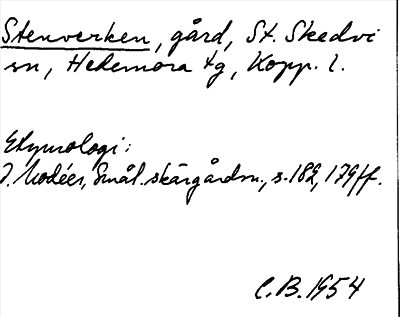 Stenverken, gård, St. Skedvi
sn, Hedemora tg, Kopp. l.
Etymologi:
J. Modéer, Smål. skärgårdsn., s. 182, 179 ff.
C.B. 1954